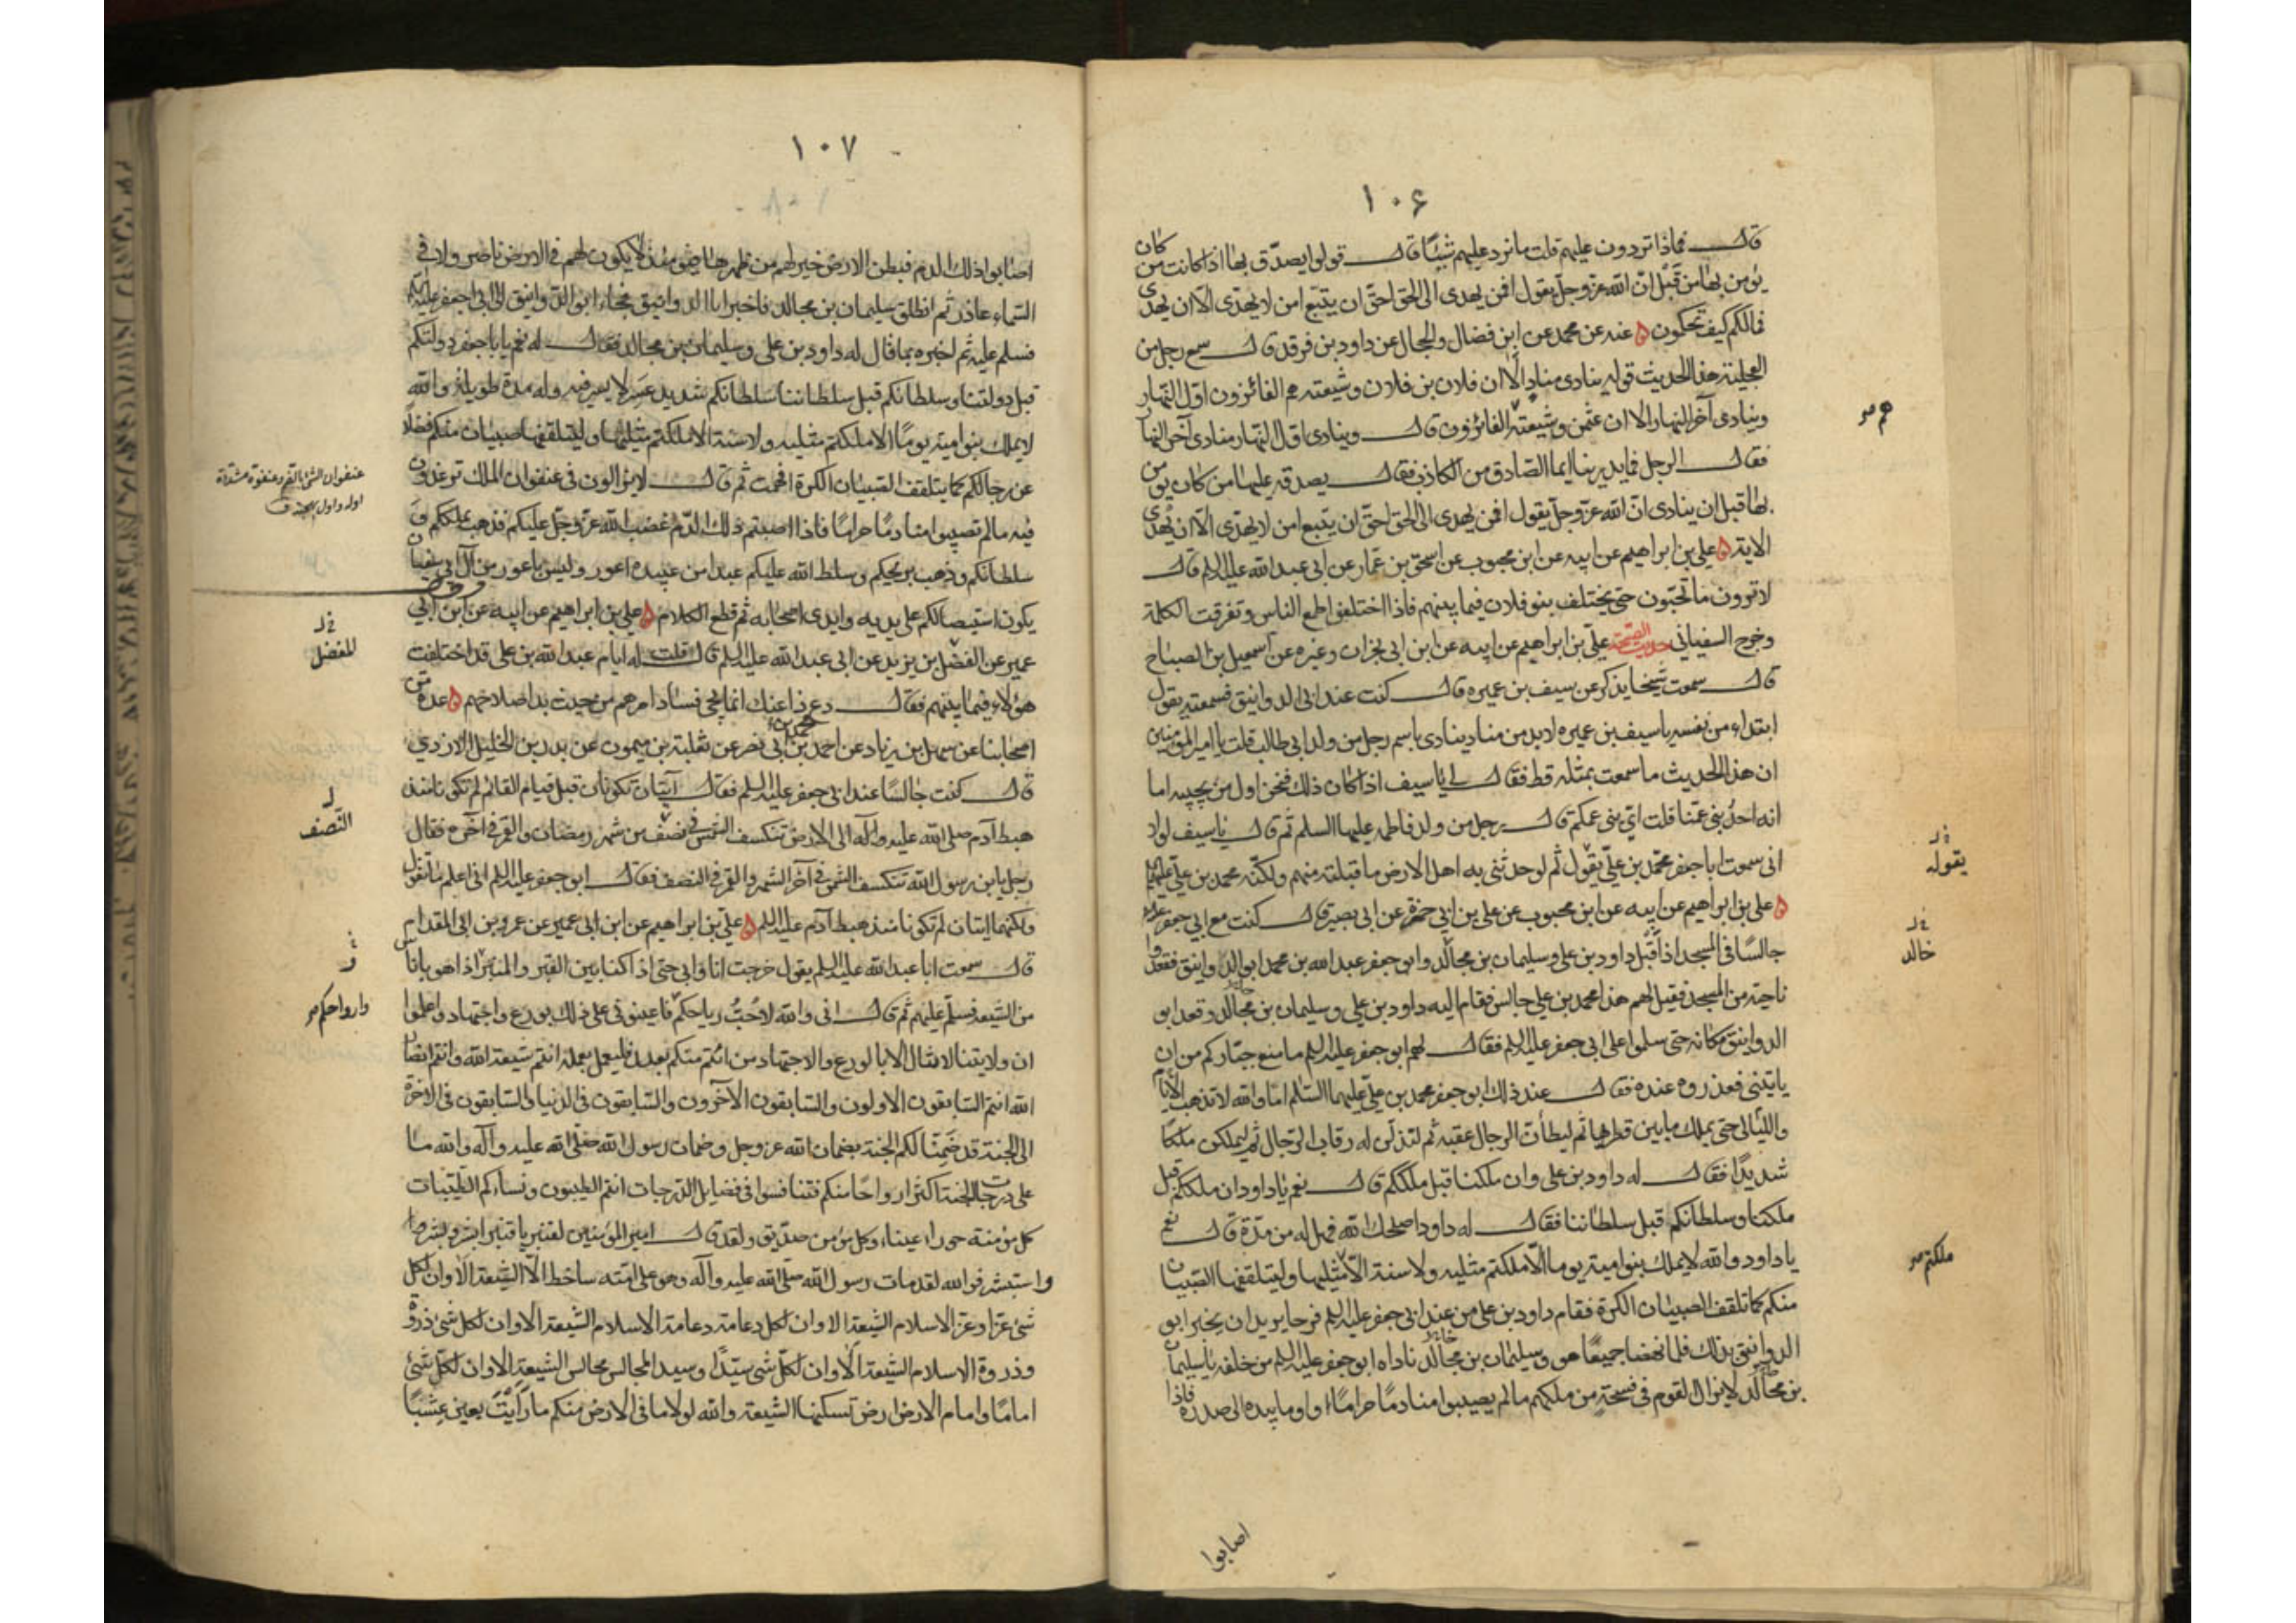 ١٠۶
قال فماذا تردون عليهم قلت ما نرد عليهم شيئًا قال قولوا يصدّق بها اذا كانت من كان
يؤمن بها من قبل انّ الله عزّ وجلّ يقول افمن يهدى الى الحق احقّ ان يتّبع امن لا يهدّى الّا ان يهدى
فما لكم كيف تحكمون ه عنه عن محمد عن ابن فضال والحجال عن داود بن فرقد قال سمع رجل من
العجلية هذا الحديث قوله ينادى مناد الا ان فلان بن فلان وشيعته هم الفائزون اوّل النهار
وينادى آخر النهار الا ان عثمن وشيعته الفائزون قال وينادى اوّل النهار منادى آخر النهار
هم صر
فقال الرجل فما يدرينا ايما الصّادق من الكاذب فقال يصدقه عليها من كان يؤمن
بها قبل ان ينادى انّ الله عزّ وجلّ يقول افمن يهدى الى الحقّ احقّ ان يتّبع امن لا يهدّى الّا ان يهدى
الاية ه على بن ابراهيم عن ابيه عن ابن محبوب عن اسحق بن عمّار عن ابى عبد الله عليه السلم قال
لا ترون ما تحبّون حتى يختلف بنو فلان فيما بينهم فاذا اختلفوا طمع الناس وتفرقت الكلمة
وخرج السفياني حديث الصيحة علىّ بن ابراهيم عن ابيه عن ابن ابى نجران وغيره عن اسمعيل بن الصباح
قال سمعت شيخا يذكر عن سيف بن عميره قال كنت عند ابى الدوانيق فسمعته يقول
ابتداء من نفسه يا سيف بن عميره لا بد من مناد ينادى باسم رجل من ولد ابى طالب قلت يا امير المؤمنين
ان هذا الحديث ما سمعت بمثله قط فقال لى يا سيف اذا كان ذلك فنحن اول من يجيبه اما
انه احد بنى عمّنا قلت اىّ بنى عمكم قال رجل من ولد فاطمه عليها السلم ثم قال يا سيف لولا
انى سمعت ابا جعفر محمّد بن علىّ يقول ثم لو حدثنى به اهل الارض ما قبلته منهم ولكنّه محمد بن علىّ عليهما
يقوله
ه على بن ابراهيم عن ابيه عن ابن محبوب عن على بن ابى حمزة عن ابى بصير قال كنت مع ابى جعفر
جالسًا فى المسجد اذ اقبل داود بن على وسليمان بن مجالد وابو جعفر عبد الله بن محمد ابو الدوانيق فقعدوا
خالد
ناحية من المسجد فقيل لهم هذا محمد بن على جالس فقام اليه داود بن على وسليمان بن مجالد وقعد ابو
الدوانيق مكانه حتى سلموا على ابى جعفر عليه السلم فقال لهم ابو جعفر عليه السلم ما منع جبّاركم من ان
ياتينى فعذروه عنده فقال عند ذلك ابو جعفر محمد بن علىّ عليهما السّلم اما والله لا تذهب الايام
والليالى حتى يملك ما بين قطريها ثم ليطأن الرجال عقبه ثم لتذلّن له رقاب الرجال ثم ليملكن ملكًا
شديدًا فقال له داود بن على وان ملكنا قبل ملككم قال نعم يا داود ان ملككم قبل
ملكنا وسلطانكم قبل سلطاننا فقال له داود اصلحك الله فهل له من مدّة قال نعم
يا داود والله لا يملك بنو امية يوما الّا ملكتم مثليه ولا سنة الّا مثليها وليتلقفها الصبيان
ملكتم صر
منكم كما تلقف الصبيان الكرة فقام داود بن على من عند ابى جعفر عليه السلم فرحا يريد ان يخبر ابو
الدوانيق بذلك فلما نهضا جميعًا هو وسليمان بن مجالد ناداه ابو جعفر عليه السلم من خلفه يا سليمان
بن مجالد لا يزال القوم فى فسحة من ملكهم ما لم يصيبوا منا دمًا حرامًا واوما بيده الى صدره فاذا
اصابوا
١٠٧
اصابوا ذلك الدم فبطن الارض خير لهم من ظهرها فيومئذ لا يكون لهم فى الارض ناصر ولا فى
السّماء عاذر ثم انطلق سليمان بن مجالد فاخبر ابا الدوانيق فجاء ابو الدوانيق الى ابى جعفر عليه السلم
فسلم عليه ثم اخبره بما قال له داود بن على وسليمان بن مجالد فقال له نعم يا ابا جعفر دولتكم
قبل دولتنا وسلطانكم قبل سلطاننا سلطانكم شديد عسر لا يسر فيه وله مدة طويلة والله
لا يملك بنو امية يومًا الا ملكتم مثليه ولا سنة الا ملكتم مثليها وليتلقفها صبيان منكم فضلًا
عن رجالكم كما يتلقف الصبيان الكرة افهمت ثم قال لا تزالون فى عنفوان الملك ترغدون
عنفوان الشئ بالضم وعنفوه مشدّدة
اوله واول بهجته ق
فيه ما لم تصيبوا منا دمًا حرامًا فاذا اصبتم ذلك الدّم غضب الله عزّ وجلّ عليكم فذهب بملككم و
سلطانكم وذهب بريحكم وسلط الله عليكم عبدا من عبيده اعور وليس باعور من آل ابى سفيان
يكون استيصالكم على يديه وايدى اصحابه ثم قطع الكلام ه على بن ابراهيم عن ابيه عن ابن ابى
عمير عن الفضل بن يزيد عن ابى عبد الله عليه السلم قال قلت له ايام عبد الله بن على قد اختلفت
للفضل
هؤلاء فيما بينهم فقال دع ذا عنك انما يجئ فساد امرهم من حيث بدا صلاحهم ه عدة من
اصحابنا عن سهل بن زياد عن احمد بن محمد بن ابى نصر عن ثعلبة بن ميمون عن بدر بن الخليل الازدي
قال كنت جالسًا عند ابى جعفر عليه السلم فقال آيتان تكونان قبل قيام القائم لم تكونا منذ
هبط آدم صلى الله عليه وآله الى الارض تنكسف الشمس فى نصف من شهر رمضان والقمر فى آخره فقال
النّصف
رجل يا بن رسول الله تنكسف الشمس فى آخر الشهر والقمر فى النصف فقال ابو جعفر عليه السلم انى اعلم ما تقول
ولكنهما ايتان لم تكونا منذ هبط آدم عليه السلم ه علىّ بن ابراهيم عن ابن ابى عمير عن عمرو بن ابى المقدام
قال سمعت ابا عبد الله عليه السلم يقول خرجت انا وابى حتى اذا كنا بين القبر والمنبر اذا هو باناس
من الشيعة فسلّم عليهم ثم قال انى والله لاحُبّ رياحكم فاعينونى على ذلك بورع واجتهاد واعلموا
وارواحكم صر
ان ولايتنا لا تنال الا بالورع والاجتهاد من ائتم منكم بعبد فليعمل بعمله انتم شيعة الله وانتم انصار
الله انتم السّابقون الاولون والسّابقون الآخرون والسّابقون فى الدنيا والسّابقون فى الاخرة
الى الجنة قد ضمِنّا لكم الجنة بضمان الله عز وجل وضمان رسول الله صلّى الله عليه وآله والله ما
على درجات الجنة اكثر ارواحًا منكم فتنافسوا فى فضايل الدّرجات انتم الطيبون ونساؤكم الطيّبات
كل مؤمنة حوراء عيناء وكل مؤمن صدّيق ولقد قال امير المؤمنين لقنبر يا قنبر ابشر وبشر
واستبشر فو الله لقد مات رسول الله صلّى الله عليه وآله وهو على امّته ساخط الّا الشيعة الا وان لكل
شئ عزا وعزّ الاسلام الشيعة الا وان لكل دعامة دعامة الاسلام الشيعة الا وان لكل شئ ذروة
وذروة الاسلام الشيعة الا وان لكلّ شئ سيّدًا وسيد المجالس مجالس الشيعة الا وان لكلّ شئ
امامًا وامام الارض ارض تسكنها الشيعة والله لولا ما فى الارض منكم ما رايتَ بعين عشبًا